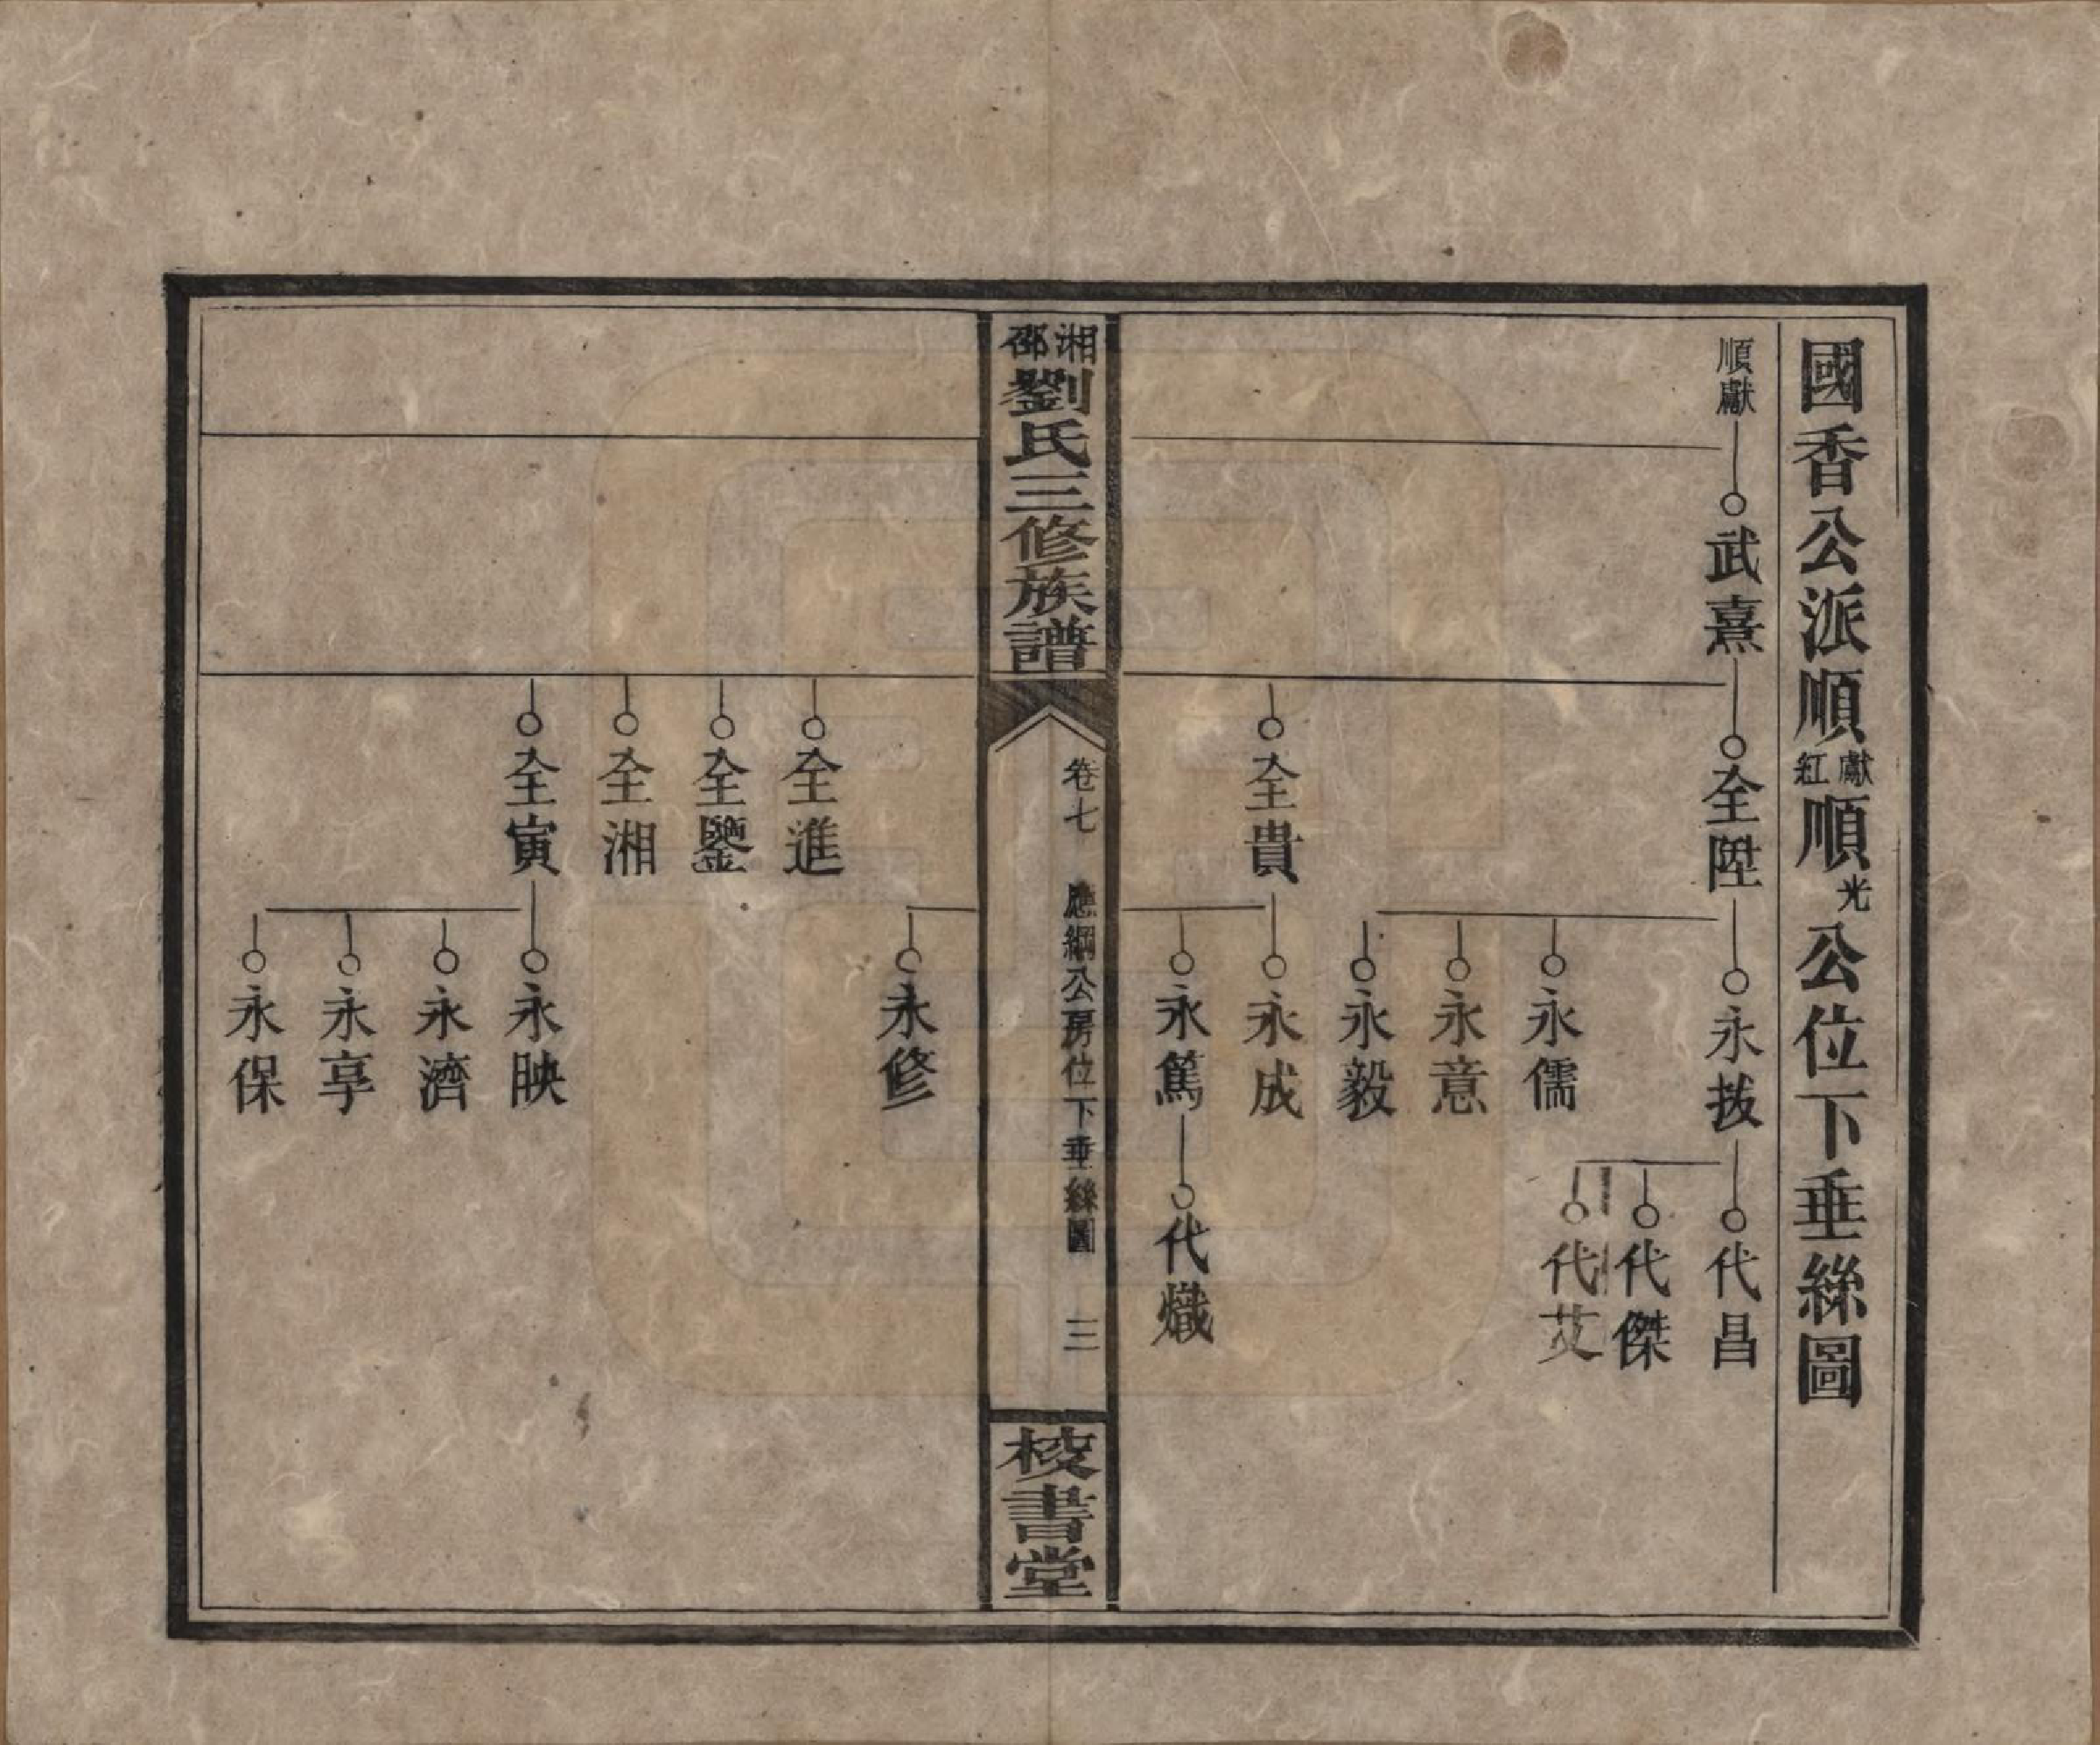 國香公派順獻紅順光公位下垂絲圖
順獻
武熹
全陞
永拔
代昌
代傑
代艾
永儒
永意
永毅
全貴
永成
永篤
代熾
湘邵劉氏三修族譜
卷七 應綱公房位下垂絲圖 三
校書堂
永修
全進
全鑒
全湘
全寅
永映
永濟
永享
永保